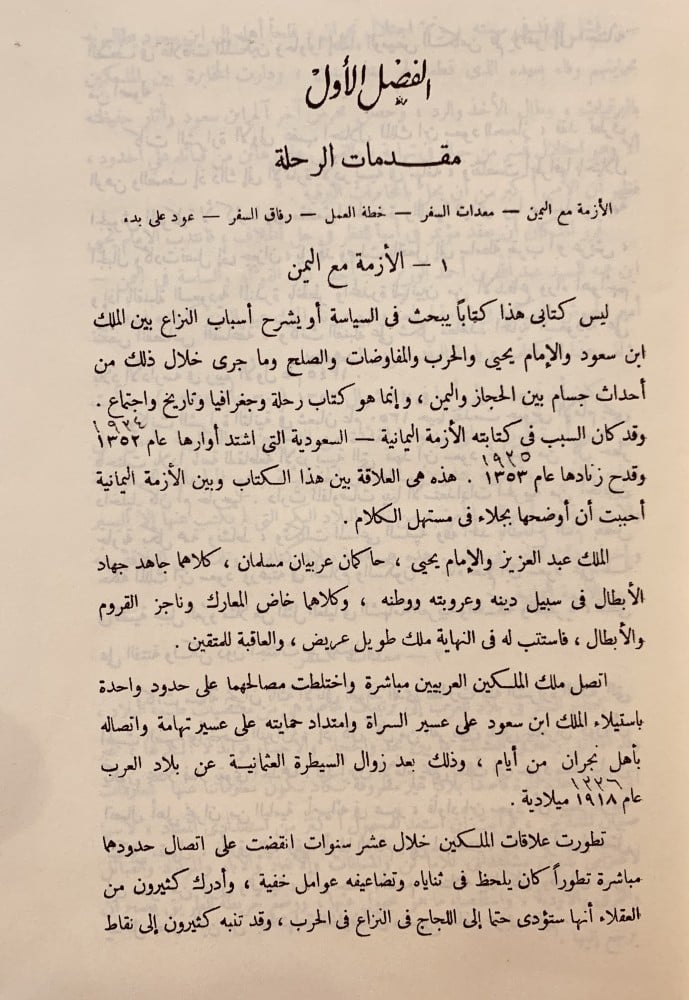 الفصل الأول
مقدمات الرحلة
الأزمة مع اليمن — معدات السفر — خطة العمل — رفاق السفر — عود على بدء
١ — الأزمة مع اليمن
ليس كتابى هذا كتاباً يبحث فى السياسة أو يشرح أسباب النزاع بين الملك
ابن سعود والإمام يحيى والحرب والمفاوضات والصلح وما جرى خلال ذلك من
أحداث جسام بين الحجاز واليمن ، وإنما هو كتاب رحلة وجغرافيا وتاريخ واجتماع .
١٩٣٤
وقد كان السبب فى كتابته الأزمة اليمانية — السعودية التى اشتد أوارها عام ١٣٥٢
١٩٣٥
وقدح زنادها عام ١٣٥٣ . هذه هى العلاقة بين هذا الكتاب وبين الأزمة اليمانية
أحببت أن أوضحها بجلاء فى مستهل الكلام .
الملك عبد العزيز والإمام يحيى ، حاكمان عربيان مسلمان ، كلاهما جاهد جهاد
الأبطال فى سبيل دينه وعروبته ووطنه ، وكلاهما خاض المعارك وناجز القروم
والأبطال ، فاستتب له فى النهاية ملك طويل عريض ، والعاقبة للمتقين .
اتصل ملك الملكين العربيين مباشرة واختلطت مصالحهما على حدود واحدة
باستيلاء الملك ابن سعود على عسير السراة وامتداد حمايته على عسير تهامة واتصاله
بأهل نجران من أيام ، وذلك بعد زوال السيطرة العثمانية عن بلاد العرب
١٣٣٦
عام ١٩١٨ ميلادية .
تطورت علاقات الملكين خلال عشر سنوات انقضت على اتصال حدودهما
مباشرة تطوراً كان يلحظ فى ثناياه وتضاعيفه عوامل خفية ، وأدرك كثيرون من
العقلاء أنها ستؤدى حتما إلى اللجاج فى النزاع فى الحرب ، وقد تنبه كثيرون إلى نقاط